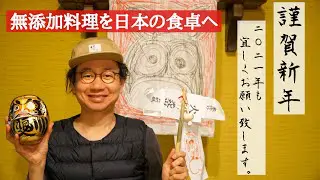 無添加料理を日本の食卓へ
謹賀新年
二〇二一年も
宜しくお願い致します。